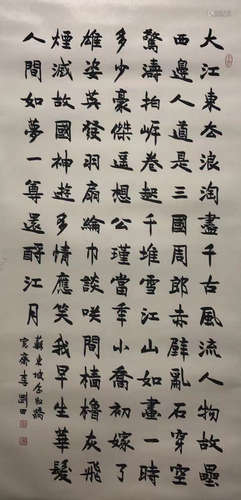 大江東去浪淘盡千古風流人物故壘
西邊人道是三國周郎赤壁亂石穿空
驚濤拍岸卷起千堆雪江山如畫一時
多少豪傑遥想公瑾當秊小喬初嫁了
雄姿英發羽扇綸巾談咲間檣櫓灰飛
煙滅故國神遊多情應笑我早生華髮
人間如夢一尊還酹江月
蘇東坡念奴嬌